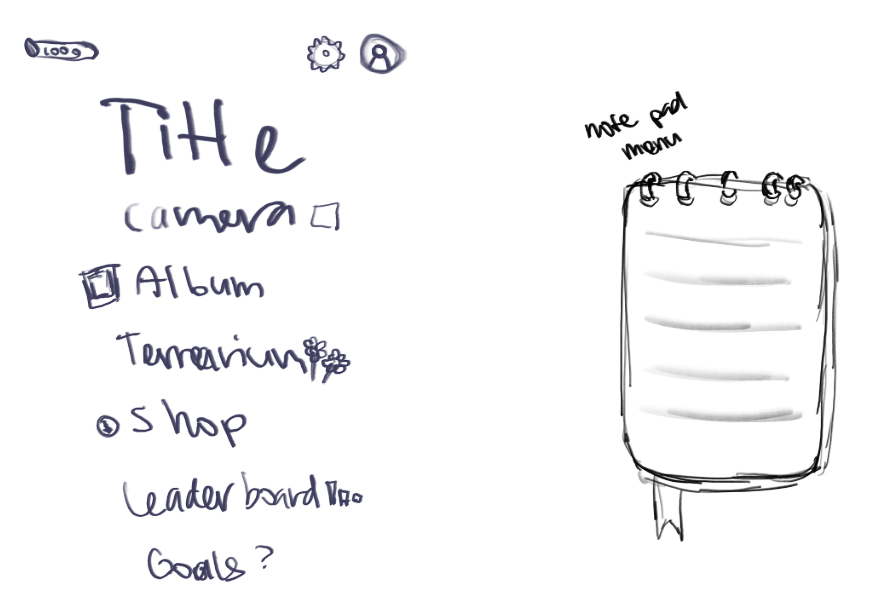 100g
Title
camera
Album
Terrearium
Shop
Leaderboard
Goals?
note pad
menu